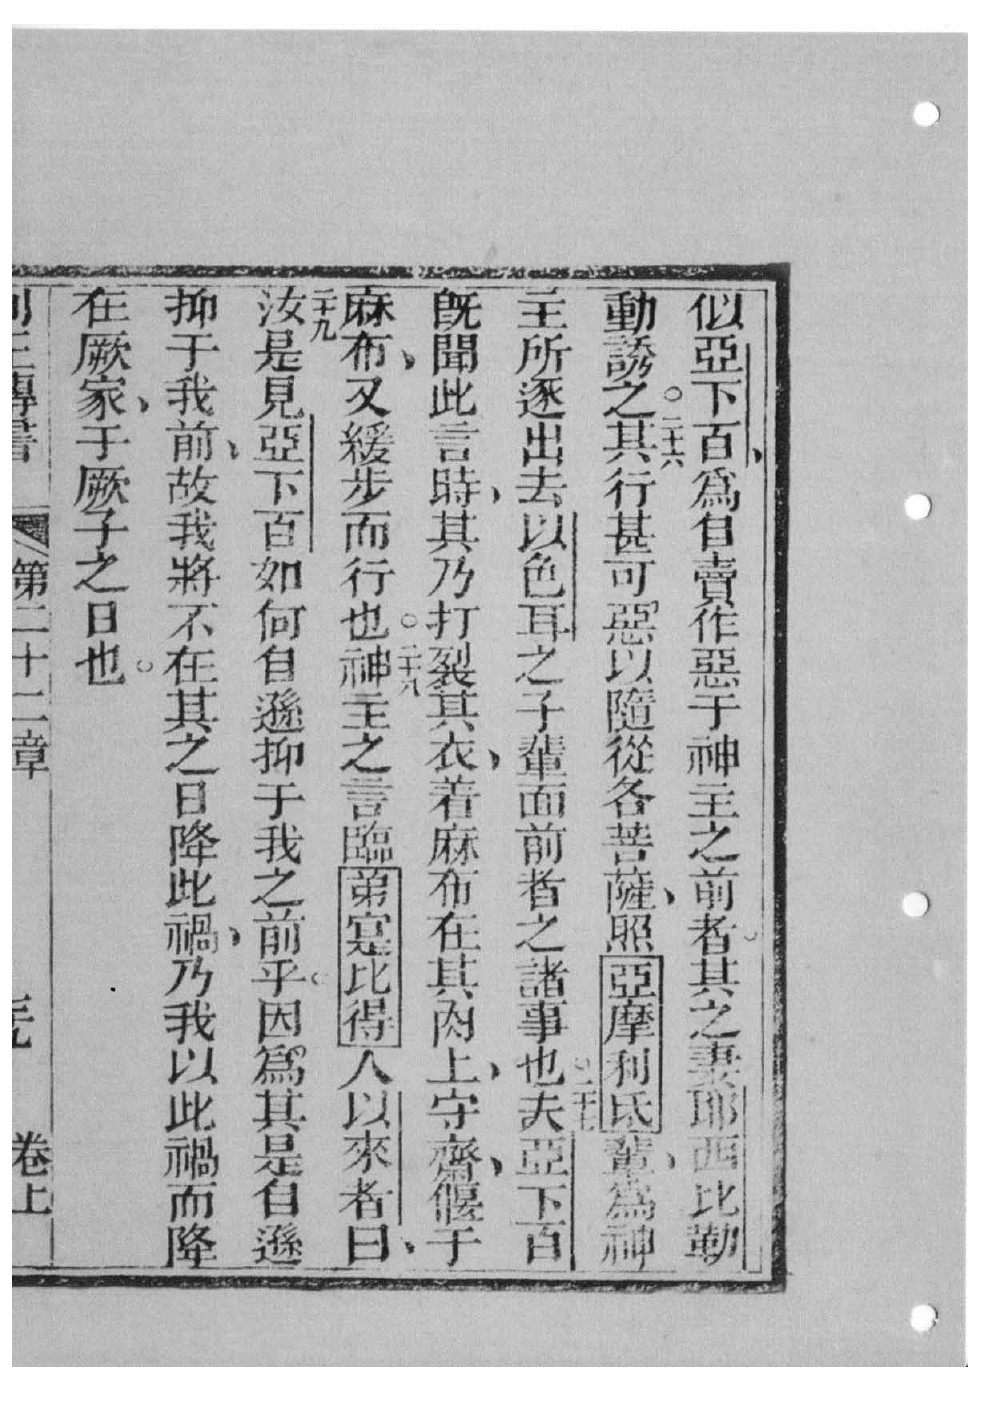 似亞下百、爲自賣作惡于神主之前者。其之妻耶西比勒
動誘之。二十六其行甚可惡以隨從各菩薩、照亞摩利氐輩、爲神
主所逐出去以色耳之子輩面前者之諸事也。二十七夫亞下百
旣聞此言時、其乃打裂其衣、着麻布在其肉上、守齋、偃于
麻布、又緩步而行也。二十八神主之言臨第寔比得人以來者曰、
二十九汝是見亞下百如何自遜抑于我之前乎。因爲其是自遜
抑于我前、故我將不在其之日降此禍、乃我以此禍而降
在厥家、于厥子之日也。
列王傳書 第二十二章 卷上